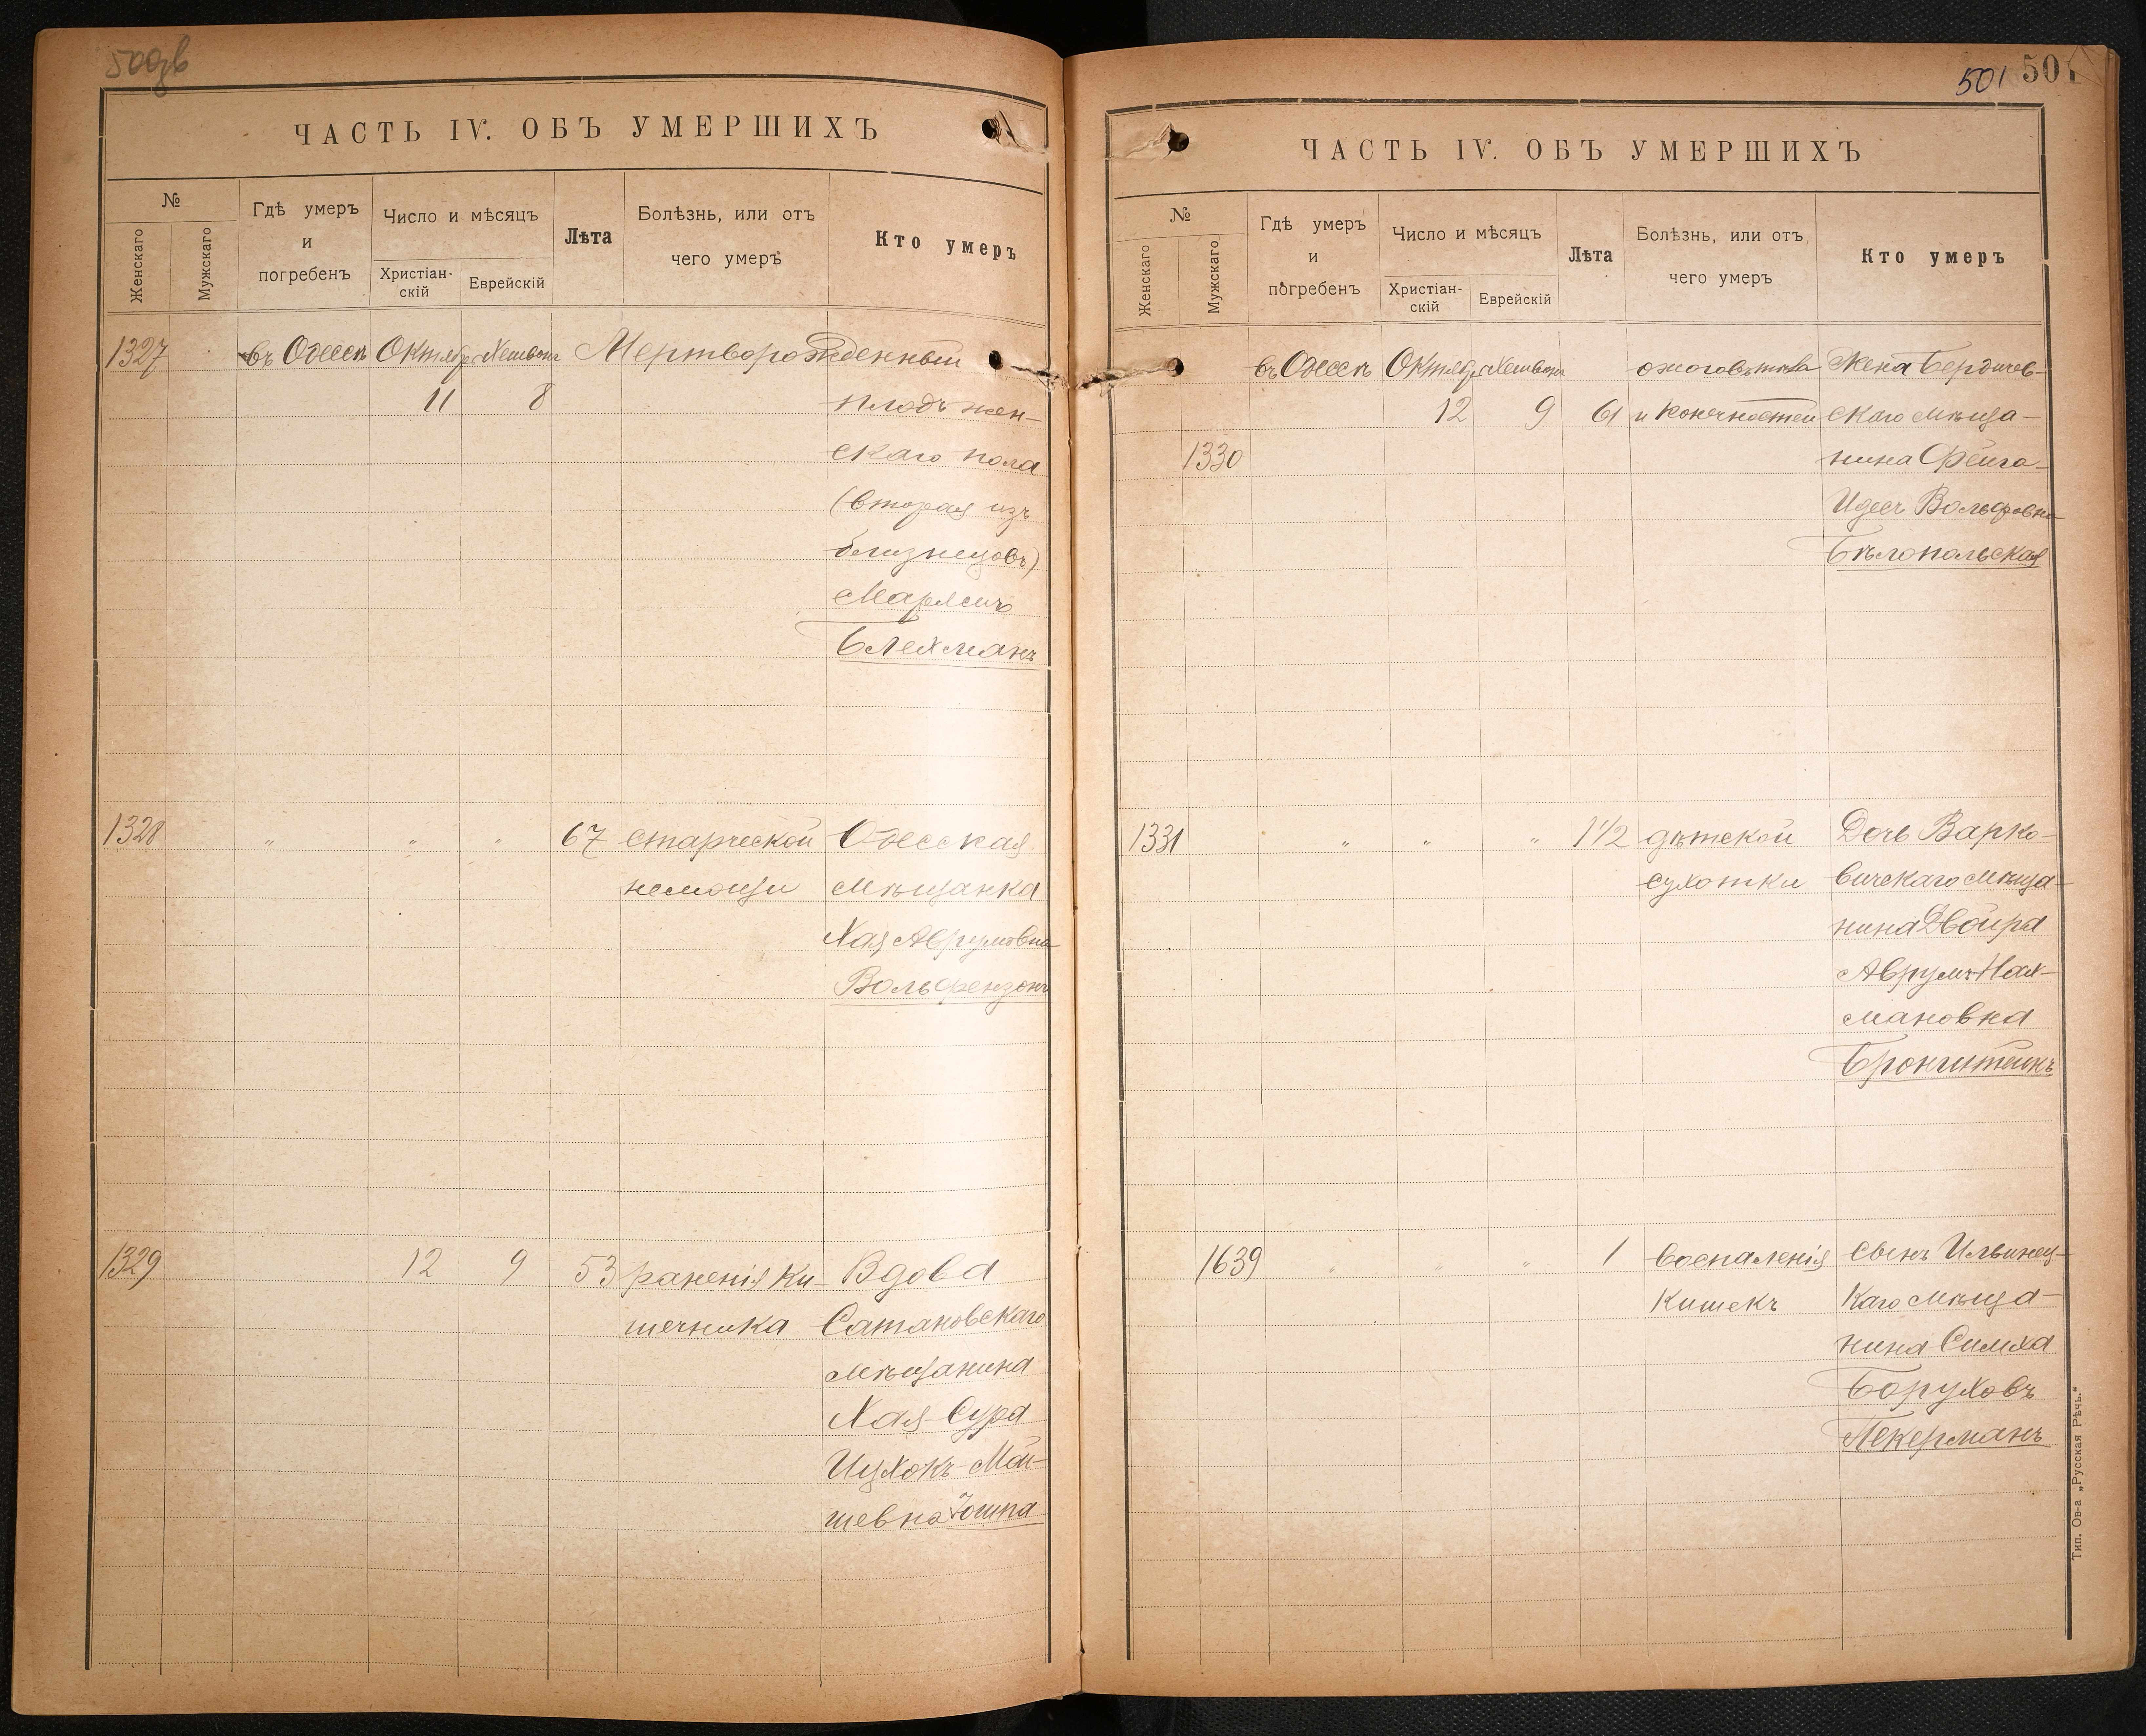 500дв
ЧАСТЬ IV. ОБЪ УМЕРШИХЪ
№
Женскаго
Мужскаго
Гдѣ умеръ
и
погребенъ
Число и мѣсяцъ
Христіан-
скій
Еврейскій
Лѣта
Болѣзнь, или отъ
чего умеръ
Кто умеръ
1327 въ Одессѣ Октября Хешвона Мертворожденный
11 8 плодъ жен-
скаго пола
(вторая изъ
близнецовъ)
Блехманъ
1328 " " " 67 старческой Одесская
немощи мѣщанка
Хая Аврумовна
Вольфензонъ
1329 12 9 53 раненія ки- Вдова
шечника Сатановскаго
мѣщанина
Хая-Сура
Ицхокъ-Мой-
шевна
501 501
ЧАСТЬ IV. ОБЪ УМЕРШИХЪ
№
Женскаго
Мужскаго
Гдѣ умеръ
и
погребенъ
Число и мѣсяцъ
Христіан-
скій
Еврейскій
Лѣта
Болѣзнь, или отъ
чего умеръ
Кто умеръ
въ Одессѣ Октября Хешвона Жена Бердичев-
12 9 61 и конечностей скаго мѣща-
1330 нина Фейга-
Идесъ Вольфовна
Бѣлопольская
1331 " " " 1 1/2 дѣтской Дочь Варко-
сухотки вичскаго мѣща-
нина Двойра
Аврумъ-Нах-
мановна
Бронштейнъ
1639 " " " 1 Воспаленія Сынъ Ильинец-
кишекъ каго мѣща-
нина Симха
Боруховъ
Пекерманъ
Тип. Ов-а „Русская Рѣчь."